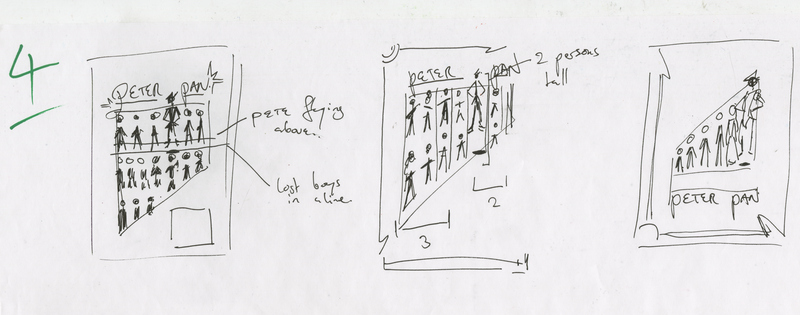 4
PETER PAN
pete flying
above.
lost boys
in a line
PETER PAN
2 persons
tall
2
3
4
PETER PAN